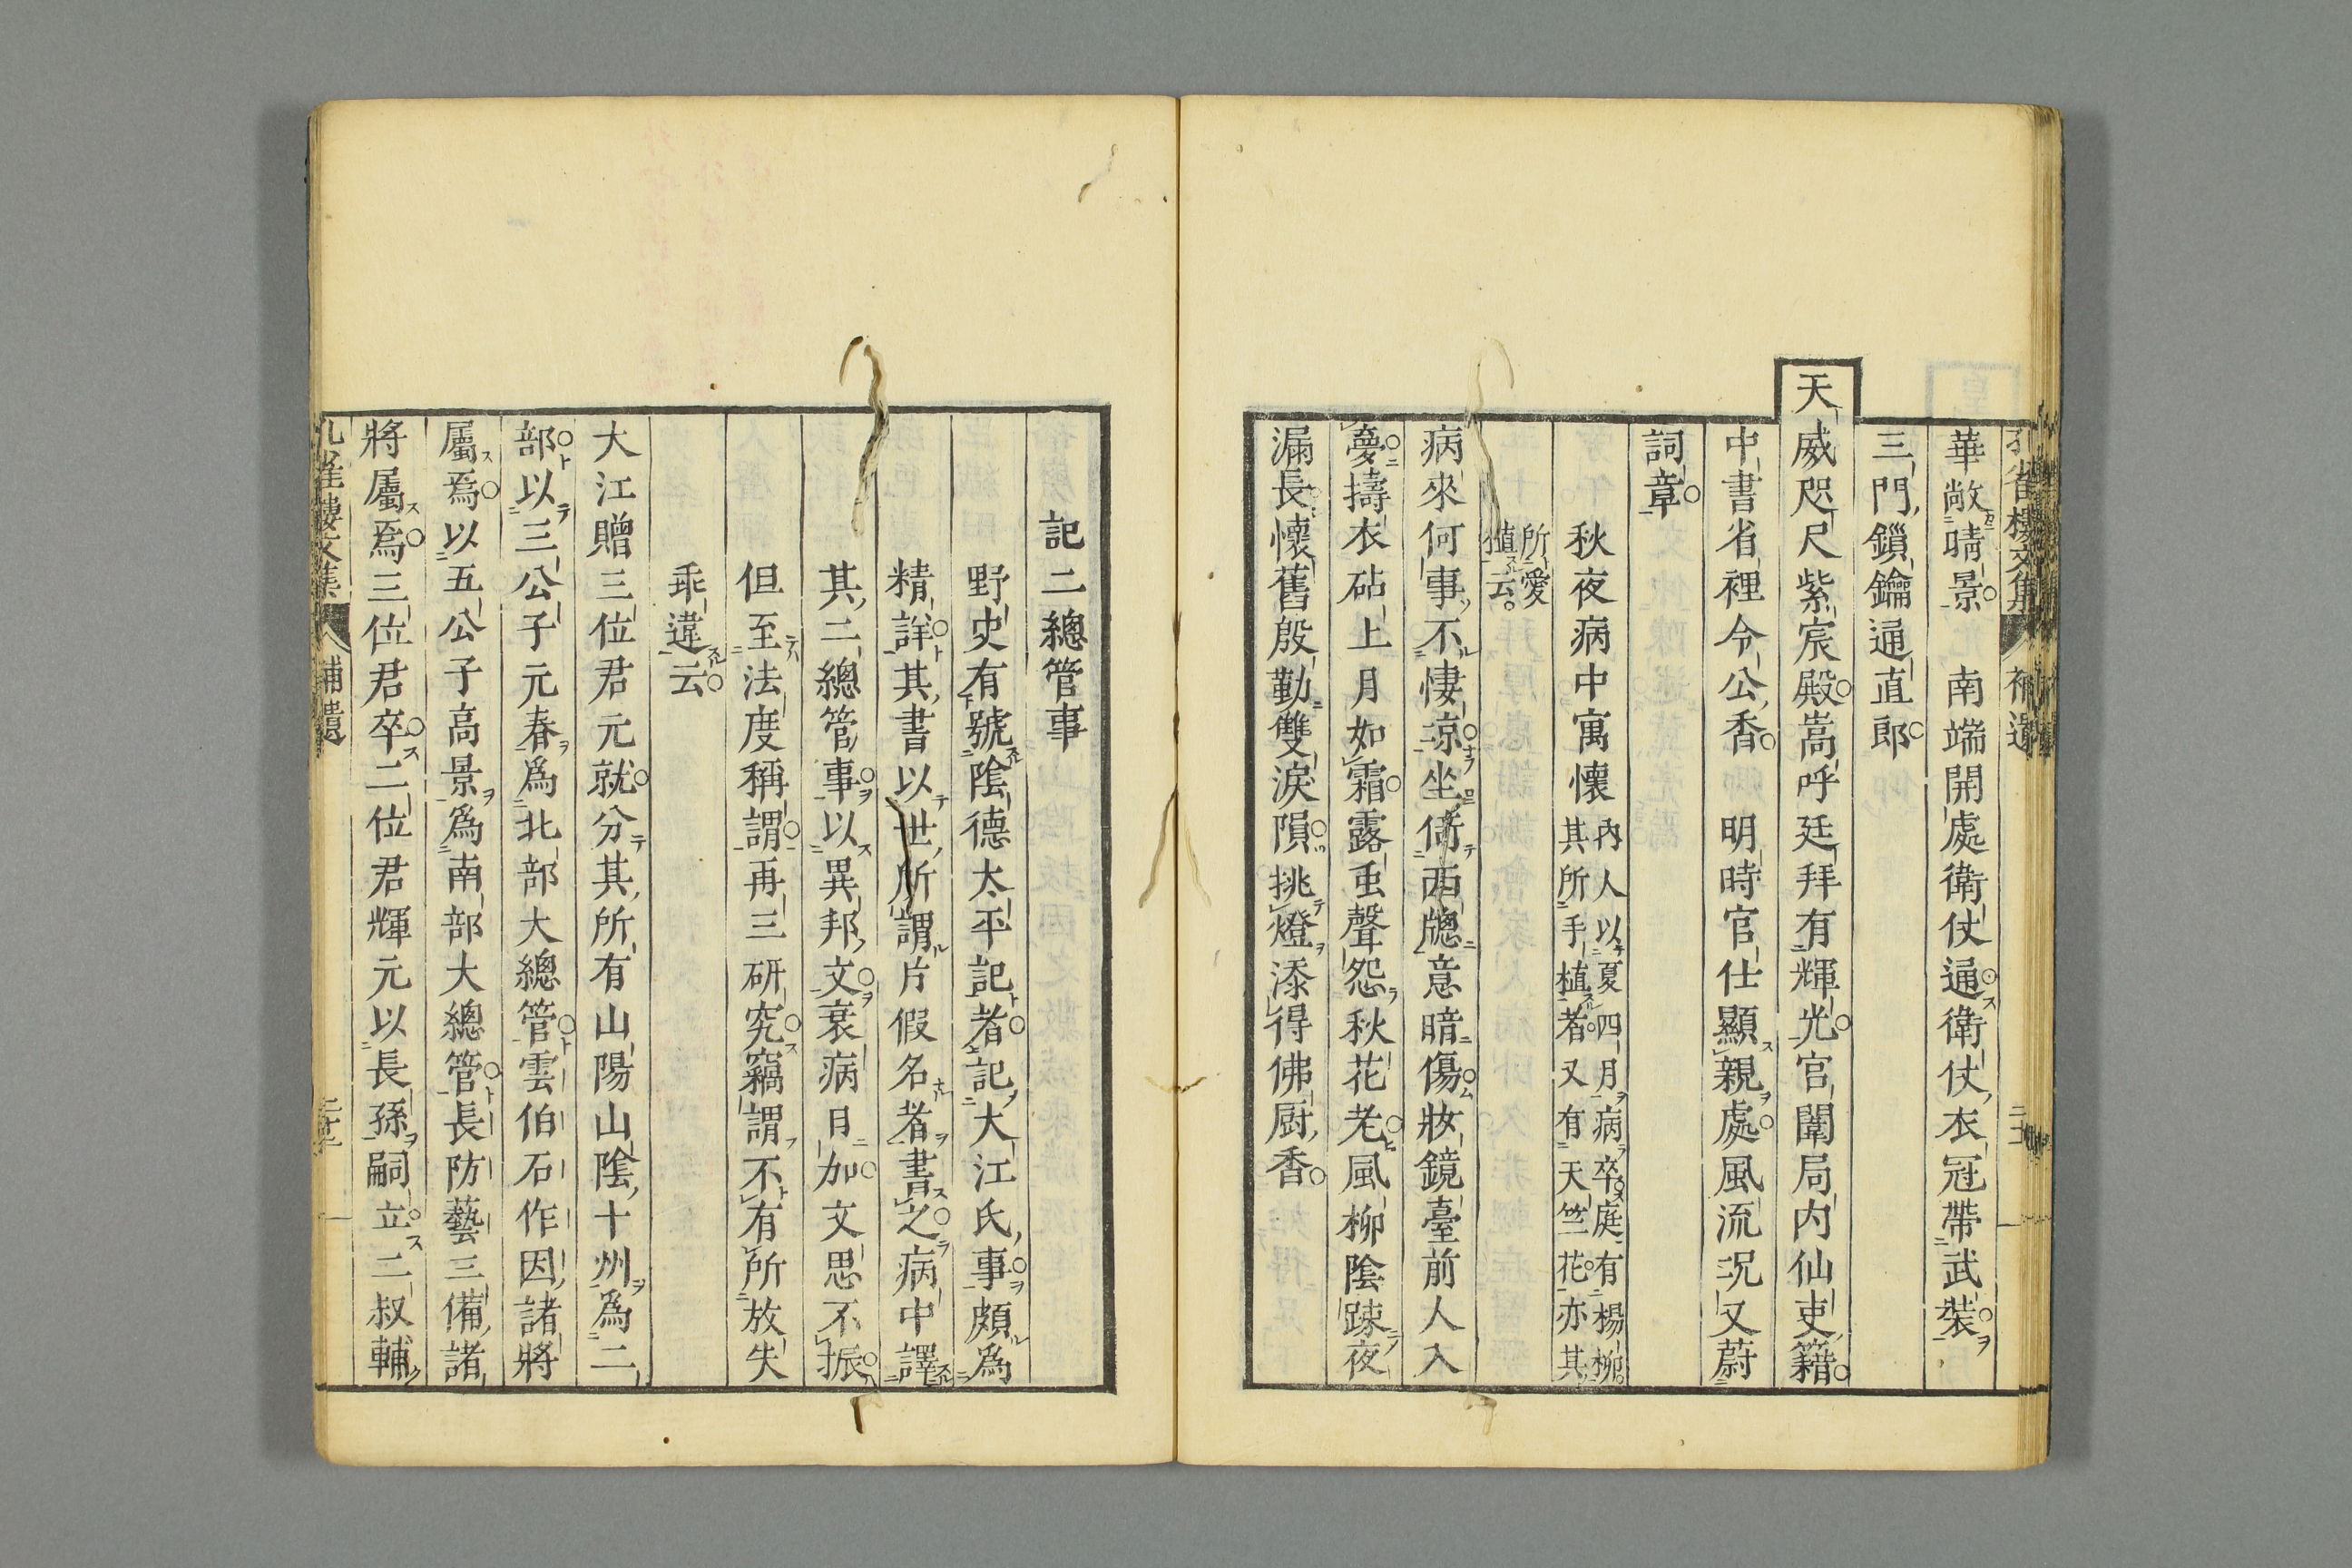 華敞晴景　南端開處衛仗通衛仗衣冠帶武裝
三門鎖鑰通直郎
天威咫尺紫宸殿嵩呼廷拜有輝光官闈局内仙吏籍
中書省裡令公香　明時官仕顯親處風流况又蔚
詞章
秋夜病中寓懷
内人以夏四月病卒庭有楊柳
其所手植者又有天竺花亦其
所愛
植云
病來何事不悽凉坐倚西牕意暗傷妝鏡臺前人入
夢擣衣砧上月如霜露虫聲怨秋花老風柳陰踈夜
漏長懷舊殷勤雙淚隕挑燈添得佛厨香
記二總管事
野史有號陰德太平記者記大江氏事頗為
精詳其書以世所謂片假名者書之病中譯
其二總管事以異邦文衰病日加文思不振
但至法度稱謂再三研究竊謂不有所放失
乖違云
大江贈三位君元就分其所有山陽山陰十州為二
部以三公子元春爲北部大總管雲伯石作因諸將
屬焉以五公子高景爲南部大總管長防藝三備諸
將屬焉三位君卒二位君輝元以長孫嗣立二叔輔
孔雀樓文集　補遺